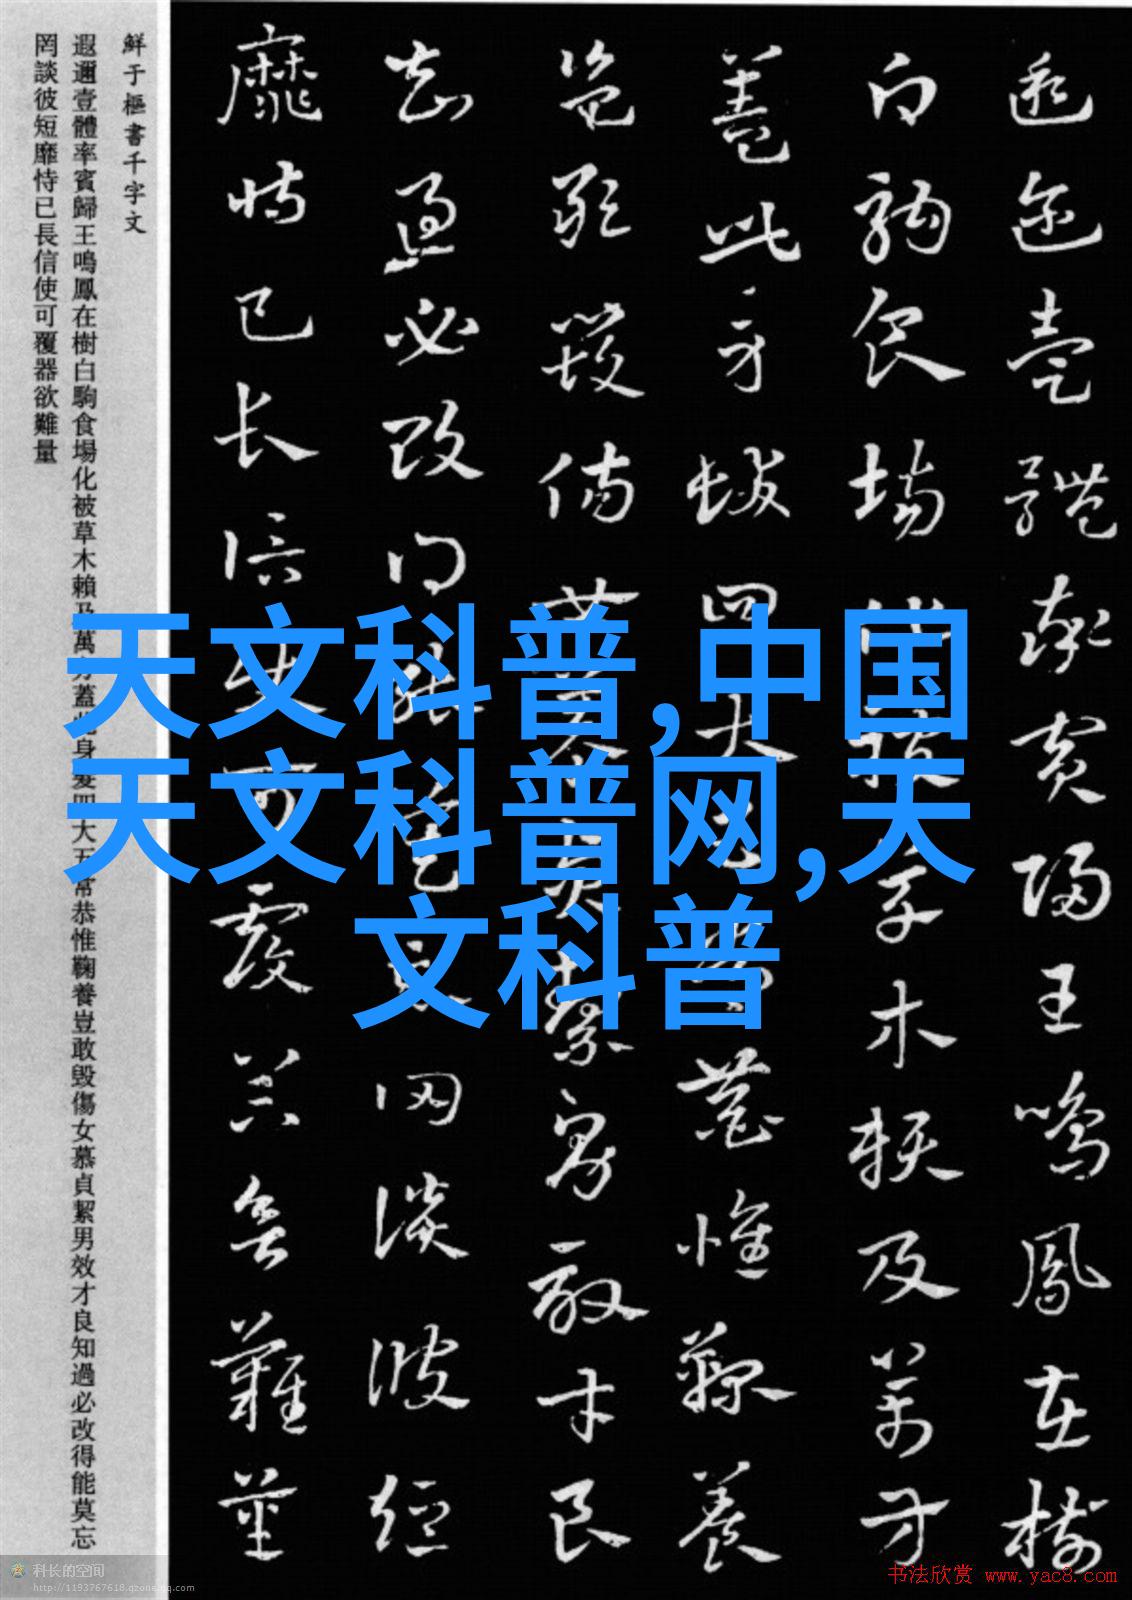 遐邇壹體率賓歸王鳴鳳在樹
白駒食場化被草木賴及萬方
蓋此身髮四大五常恭惟鞠養
豈敢毀傷女慕貞絜男效才良
知過必改得能莫忘罔談彼短
靡恃已長信使可覆器欲難量
鮮于樞書千字文
遐邇壹體率賓歸王鳴鳳在樹白駒食場化被草木賴及萬方蓋此身髮四大五常恭惟鞠養豈敢毀傷女慕貞絜男效才良知過必改得能莫忘
罔談彼短靡恃已長信使可覆器欲難量
天文科普,中国
天文科普网,天
文科普
科长的空间
http://1193767618.qzone.qq.com
书法欣赏 www.yac8.com